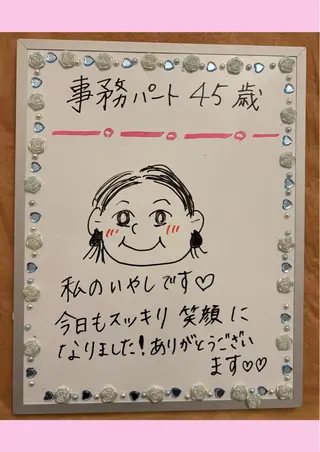 事務パート45歳
私のいやしです♡
今日もスッキリ笑顔に
なりました!ありがとうござい
ます♡♡